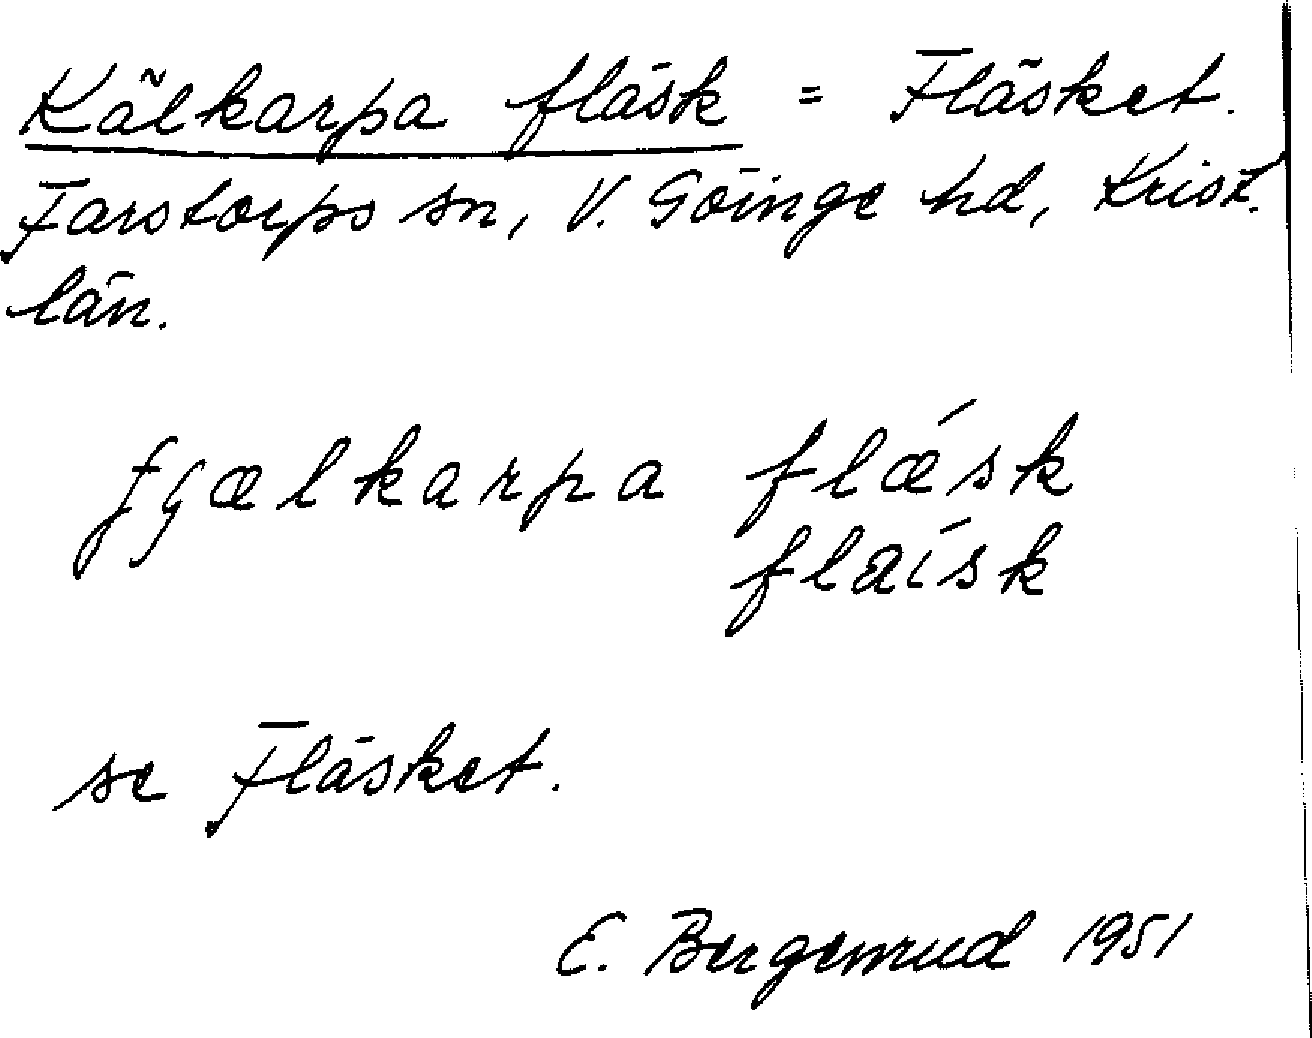 Kälkarpa fläsk = Fläsket.
Farstorps sn, V. Göinge hd, Krist.
län.
fɟælkarpa flǽsk
flaísk
se Fläsket.
E. Bergemrud 1951